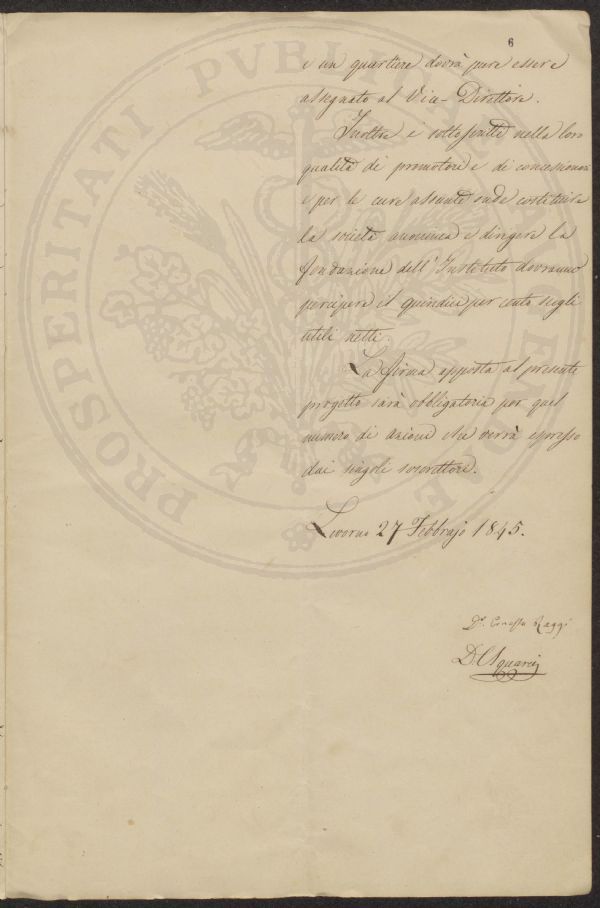 6
e un quartiere dovrà pure essere
assegnato al Vice-Direttore.
Inoltre i sottoscritti nella loro
qualità di promotori e di concessionari
e per le cure assunte onde costituire
la società anonima e dirigere la
fondazione dell'Instituto dovranno
percipere il quindici per cento sugli
utili netti.
La firma apposta al presente
progetto sarà obbligatoria per quel
numero di azioni che verrà espresso
dai singoli soscrittori.
Livorno 27 Febbrajo 1845.
Dr. Raggi
D. Squarci
PROSPERITATI PVBLICAE